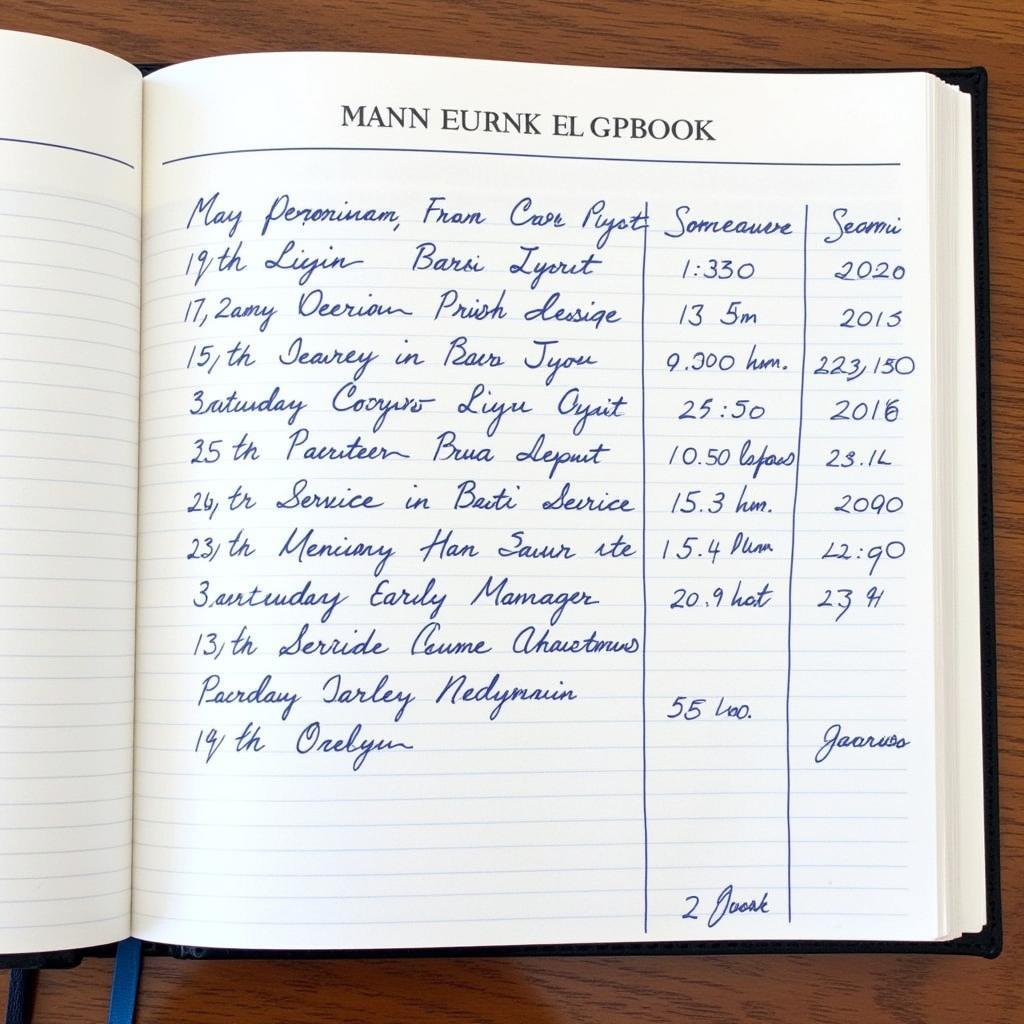 MANN EURNK EL GPBOOK
May Peroninam, Fram Care Puyst Someauere Seomi
19th Liyin Barsi Iyorit 1:330 2020
17, 2amy Deeriom Prish dessige 13 5m 2015
15, th Jearey in Bars Jyou 9.300 hm. 223,150
3atuuday Cooypvs Liyu Oyrit 25:50 2016
35 th Paerteern Brua depnt 10.50 23.1L
26, tr Service in Bati Service 15.3 hm. 2090
23, th Menciany Han Saur ite 15.4 22:90
3aurtuuday Early Mamager 20.9 hot 23 91
13, th Serride Caume
Paerday Jarley Nedymnin
55
19 th Orelyun
Jaaruss
2